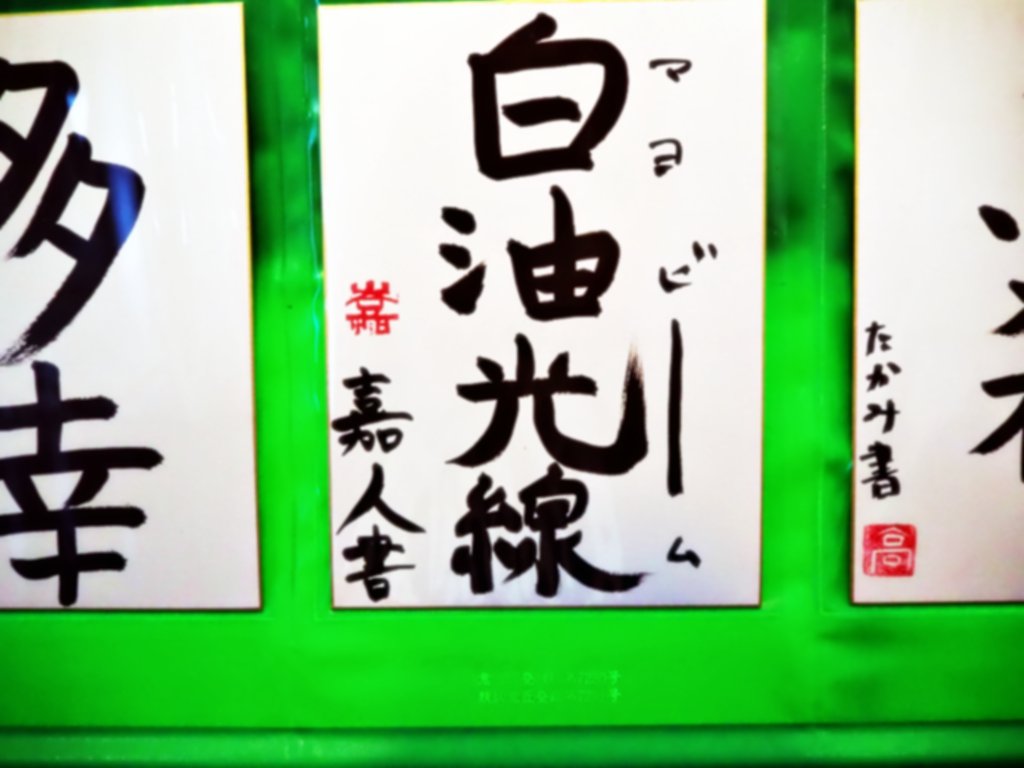 多幸
マヨビーム
白油光線
嘉人書
嘉
たかみ書
高